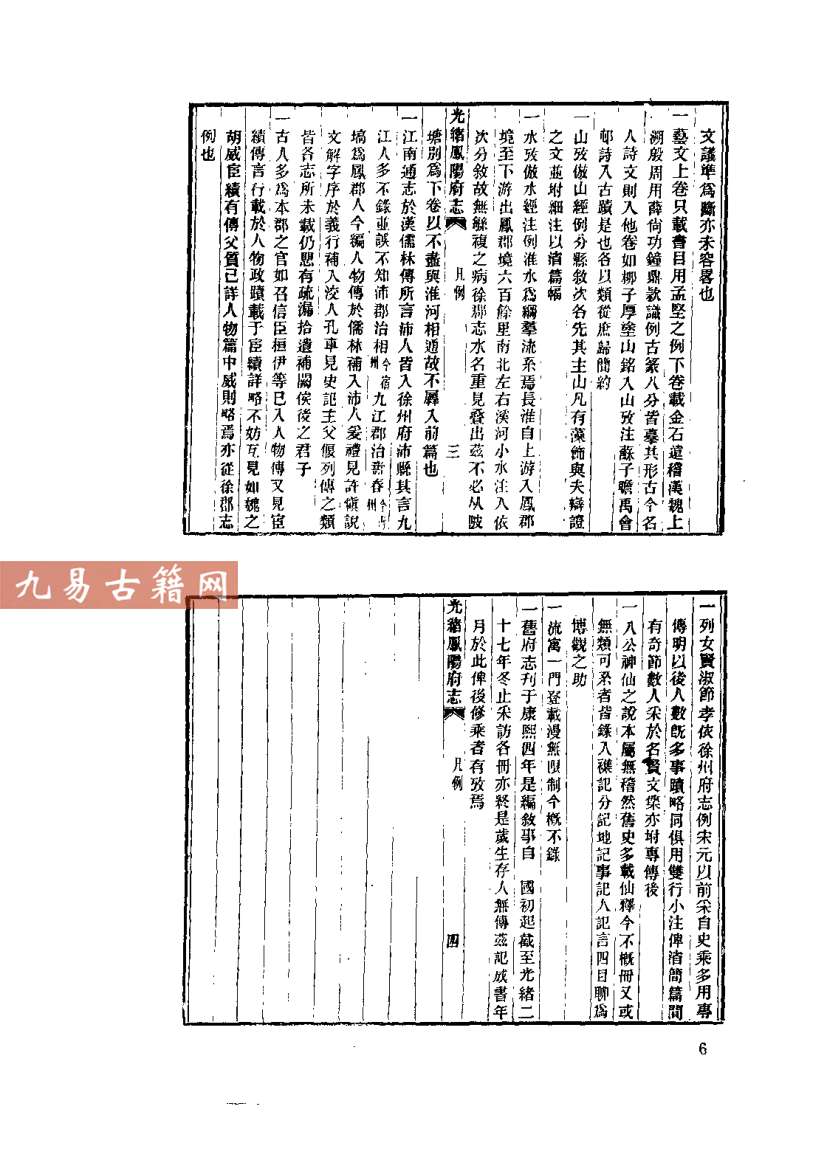 文議準爲斷亦未容畧也
一藝文上卷只載書目用孟堅之例下卷載金石遠稽漢魏上
溯殷周用薛尙功鐘鼎款識例古篆八分皆摹其形古今名
人詩文則入他卷如柳子厚塗山銘入山攷注蘇子瞻禹會
邨詩入古蹟是也各以類從庶歸簡約
一山攷倣山經例分縣敘次各先其主山凡有藻飾與夫辯證
之文並坿細注以淸篇幅
一水攷倣水經注例淮水爲綱羣流系焉長淮自上游入鳳郡
境至下游出鳳郡境六百餘里南北左右溪河小水注入依
次分敘故無緟複之病徐郡志水名重見疊出茲不必从陂
光緖鳳陽府志 凡例 三
塘別爲下卷以不盡與淮河相通故不羼入前篇也
一江南通志於漢儒林傳所言沛人皆入徐州府沛縣其言九
江人多不錄並誤不知沛郡治相今宿州九江郡治壽春今壽州
塙爲鳳郡人今編人物傳於儒林補入沛人爰禮見許愼說
文解字序於義行補入淩人孔車見史記主父偃列傳之類
皆各志所未載仍懇有疏漏拾遺補闕俟後之君子
一古人多爲本郡之官如召信臣桓伊等已入人物傳又見宦
績傳言行載於人物政蹟載于宦績詳略不妨互見如魏之
胡威宦績有傳父質已詳人物篇中威則略焉亦從徐郡志
例也
一列女賢淑節孝依徐州府志例宋元以前采自史乘多用專
傳明以後人數旣多事蹟略同俱用雙行小注俾淸簡篇間
有奇節數人采於名賢文集亦坿專傳後
一八公神仙之說本屬無稽然舊史多載仙釋今不槪冊又或
無類可系者皆錄入襍記分記地記事記人記言四目聊爲
博觀之助
一流寓一門登載漫無限制今槪不錄
一舊府志刊于康熙四年是編敘事自 國初起截至光緖二
十七年冬止采訪各冊亦終是歲生存人無傳茲記成書年
月於此俾後修乘者有攷焉
光緖鳳陽府志 凡例 四
九易古籍网
6